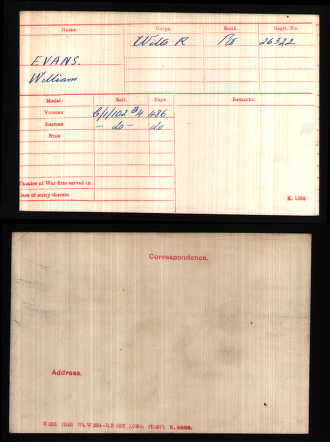 Name. Corps. Rank. Regtl. No.
Wilts R Pte 26322
EVANS.
William
Medal. Roll. Page. Remarks.
VICTORY G/1/102 B4 486
BRITISH - do - do
STAR
Theatre of War first served in
Date of entry therein
K. 1380
Correspondence.
Address.
K. 1380.